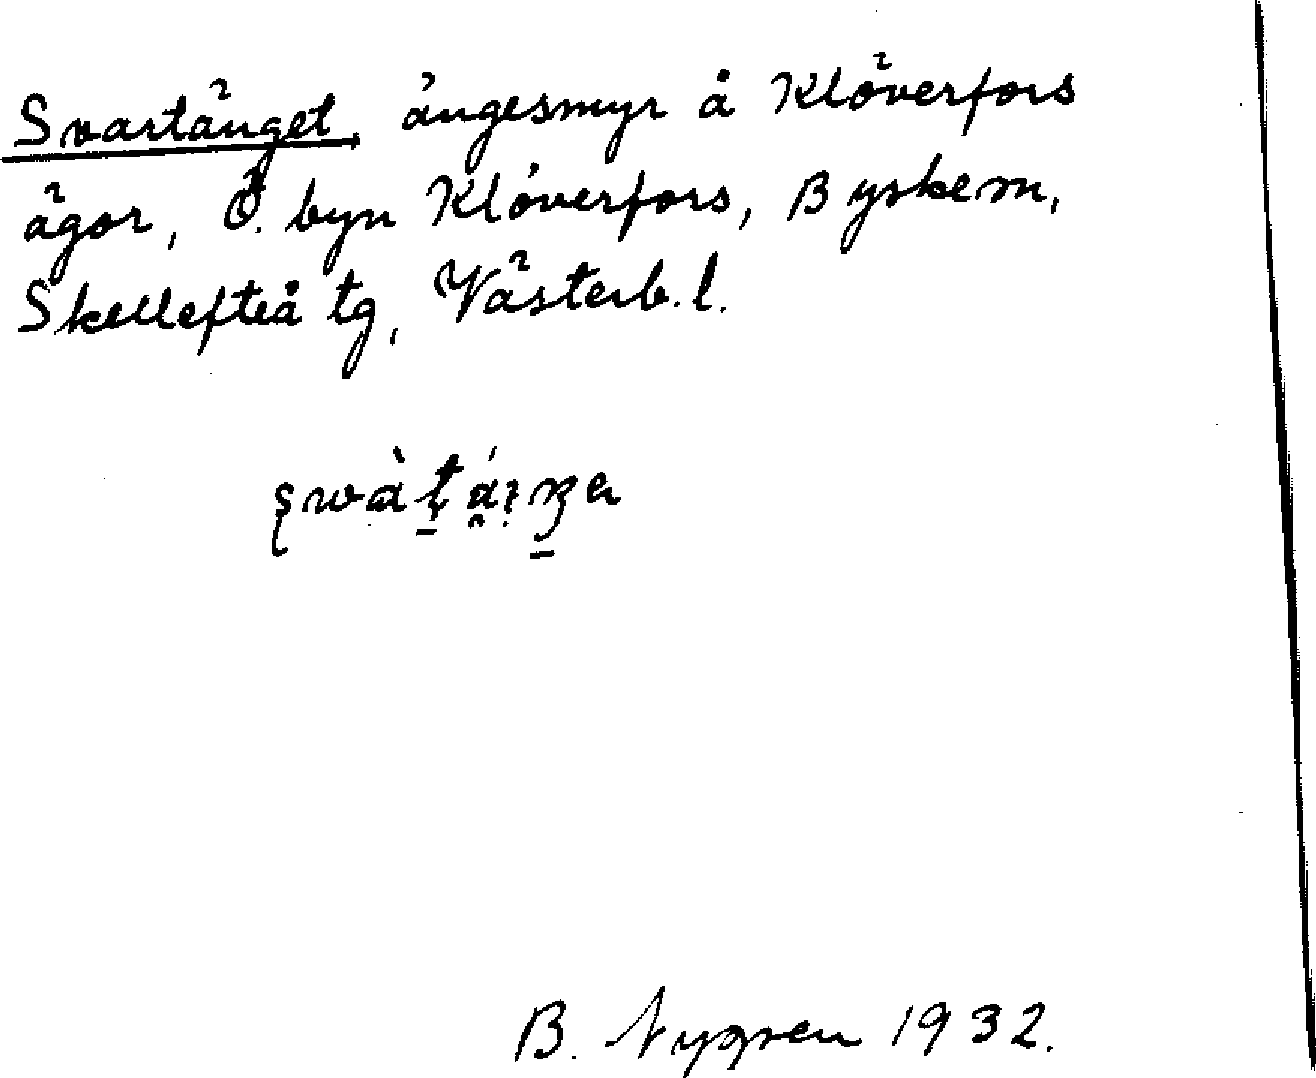 Svartänget, ängesmyr å Klöverfors
ägor, Ö. byn Klöverfors, Byskem,
Skellefteå tg, Västerb. l.
B. Nygren 1932.